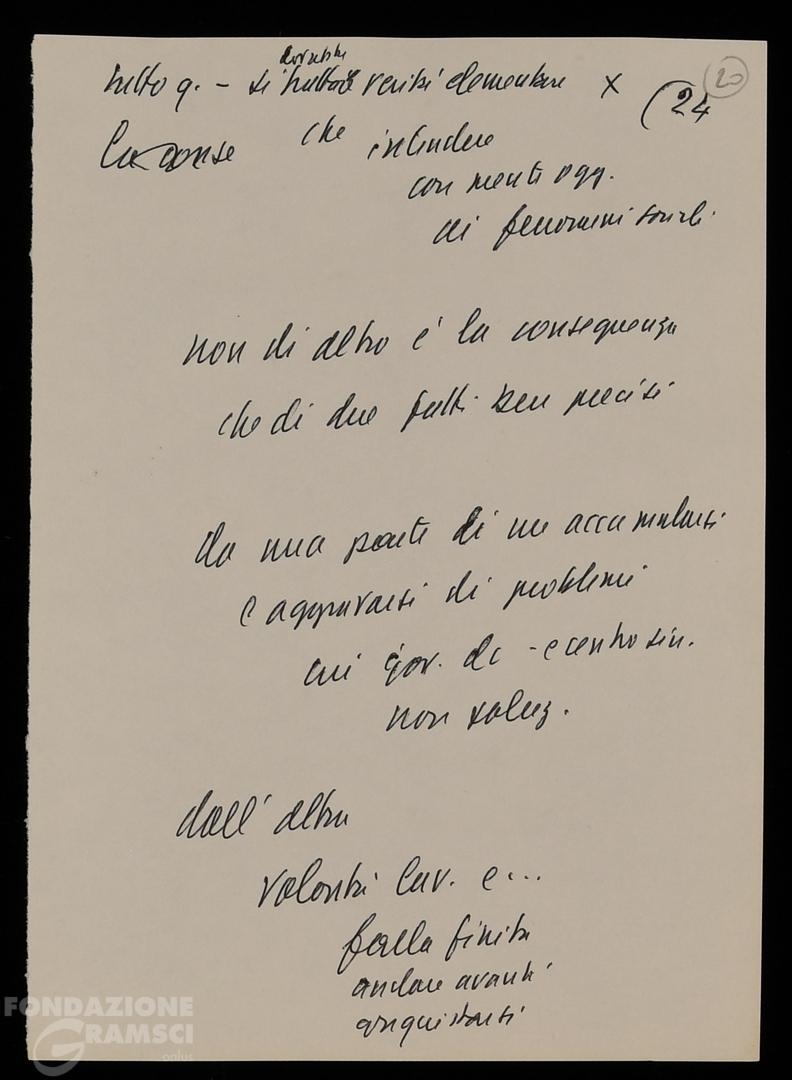 20
tutto q. - si tratta verità elementare x (24
che intendere
con mente ogg.
di fenomeni sociali
non di altro è la conseguenza
che di due fatti ben precisi
da una parte di un accumularsi
e aggravarsi di problemi
cui gov. dc - e centro sin.
non soluz.
dall'altra
volontà lav. e...
farla finita
andare avanti
conquistarsi
FONDAZIONE
GRAMSCI
onlus